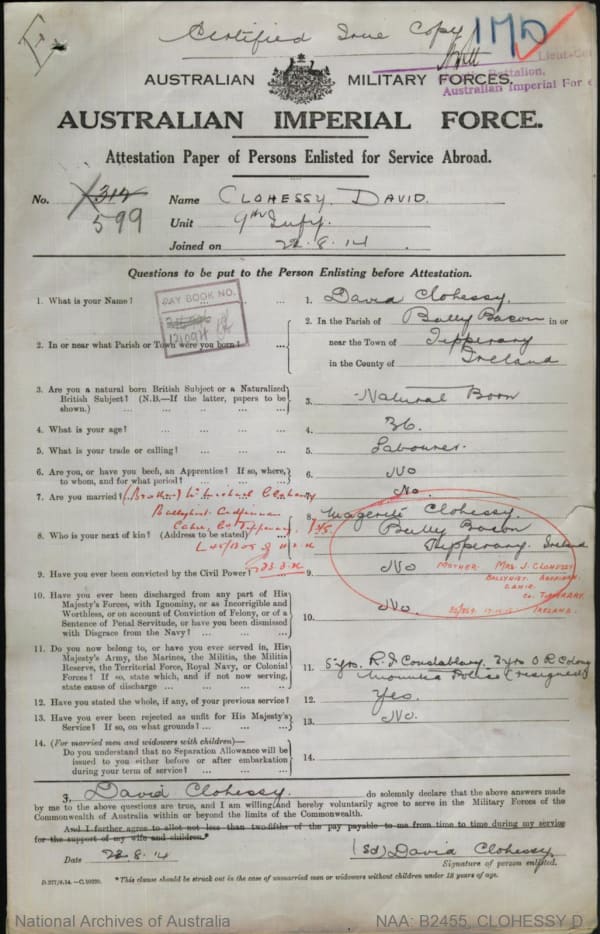 Certified True Copy
1MD
Lieut-Co
Battalion,
Australian Imperial For
AUSTRALIAN MILITARY FORCES.
AUSTRALIAN IMPERIAL FORCE.
Attestation Paper of Persons Enlisted for Service Abroad.
No. 314 599
Name CLOHESSY, DAVID.
Unit 9th Inf.
Joined on 22.8.14
Questions to be put to the Person Enlisting before Attestation.
PAY BOOK NO.
1. What is your Name? ... ... 1. David Clohessy.
2. In or near what Parish or Town were you born? ... 2. In the Parish of Bally Bacon in or
near the Town of Tipperary
in the County of Ireland
3. Are you a natural born British Subject or a Naturalized
British Subject? (N.B.—If the latter, papers to be
shown.) ... ... ... ... 3. Natural Born
4. What is your age? ... ... ... ... 4. 36.
5. What is your trade or calling? ... ... ... 5. Labourer.
6. Are you, or have you been, an Apprentice? If so, where,
to whom, and for what period? ... ... 6. No
7. Are you married? ... No.
(Brother) Michael Clohessy
8. Who is your next of kin? (Address to be stated) 8. Clohessy
Bally Bacon
Tipperary. Ireland
MOTHER. MRS J. CLOHESSY
CAHIR.
CO. TIPPERARY.
IRELAND.
9. Have you ever been convicted by the Civil Power? 9. No
10. Have you ever been discharged from any part of His
Majesty's Forces, with Ignominy, or as Incorrigible and
Worthless, or on account of Conviction of Felony, or of a
Sentence of Penal Servitude, or have you been dismissed
with Disgrace from the Navy? ... ... 10. No.
11. Do you now belong to, or have you ever served in, His
Majesty's Army, the Marines, the Militia, the Militia
Reserve, the Territorial Force, Royal Navy, or Colonial
Forces? If so, state which, and if not now serving,
state cause of discharge ... ... ... 11. 5 yrs. R. I Constabulary. 3 yrs O R Colony
Police (resigned)
12. Have you stated the whole, if any, of your previous service? 12. Yes.
13. Have you ever been rejected as unfit for His Majesty's
Service? If so, on what grounds? ... ... 13. No.
14. (For married men and widowers with children)—
Do you understand that no Separation Allowance will be
issued to you either before or after embarkation
during your term of service? ... ... 14.
I, David Clohessy. do solemnly declare that the above answers made
by me to the above questions are true, and I am willing and hereby voluntarily agree to serve in the Military Forces of the
Commonwealth of Australia within or beyond the limits of the Commonwealth.
And I further agree to allot not less than two-fifths of the pay payable to me from time to time during my service
for the support of my wife and children.*
Date 22.8.14 (Sd) David Clohessy
Signature of person enlisted.
D.277/8.14.—C.10920. *This clause should be struck out in the case of unmarried men or widowers without children under 18 years of age.
National Archives of Australia NAA: B2455, CLOHESSY D